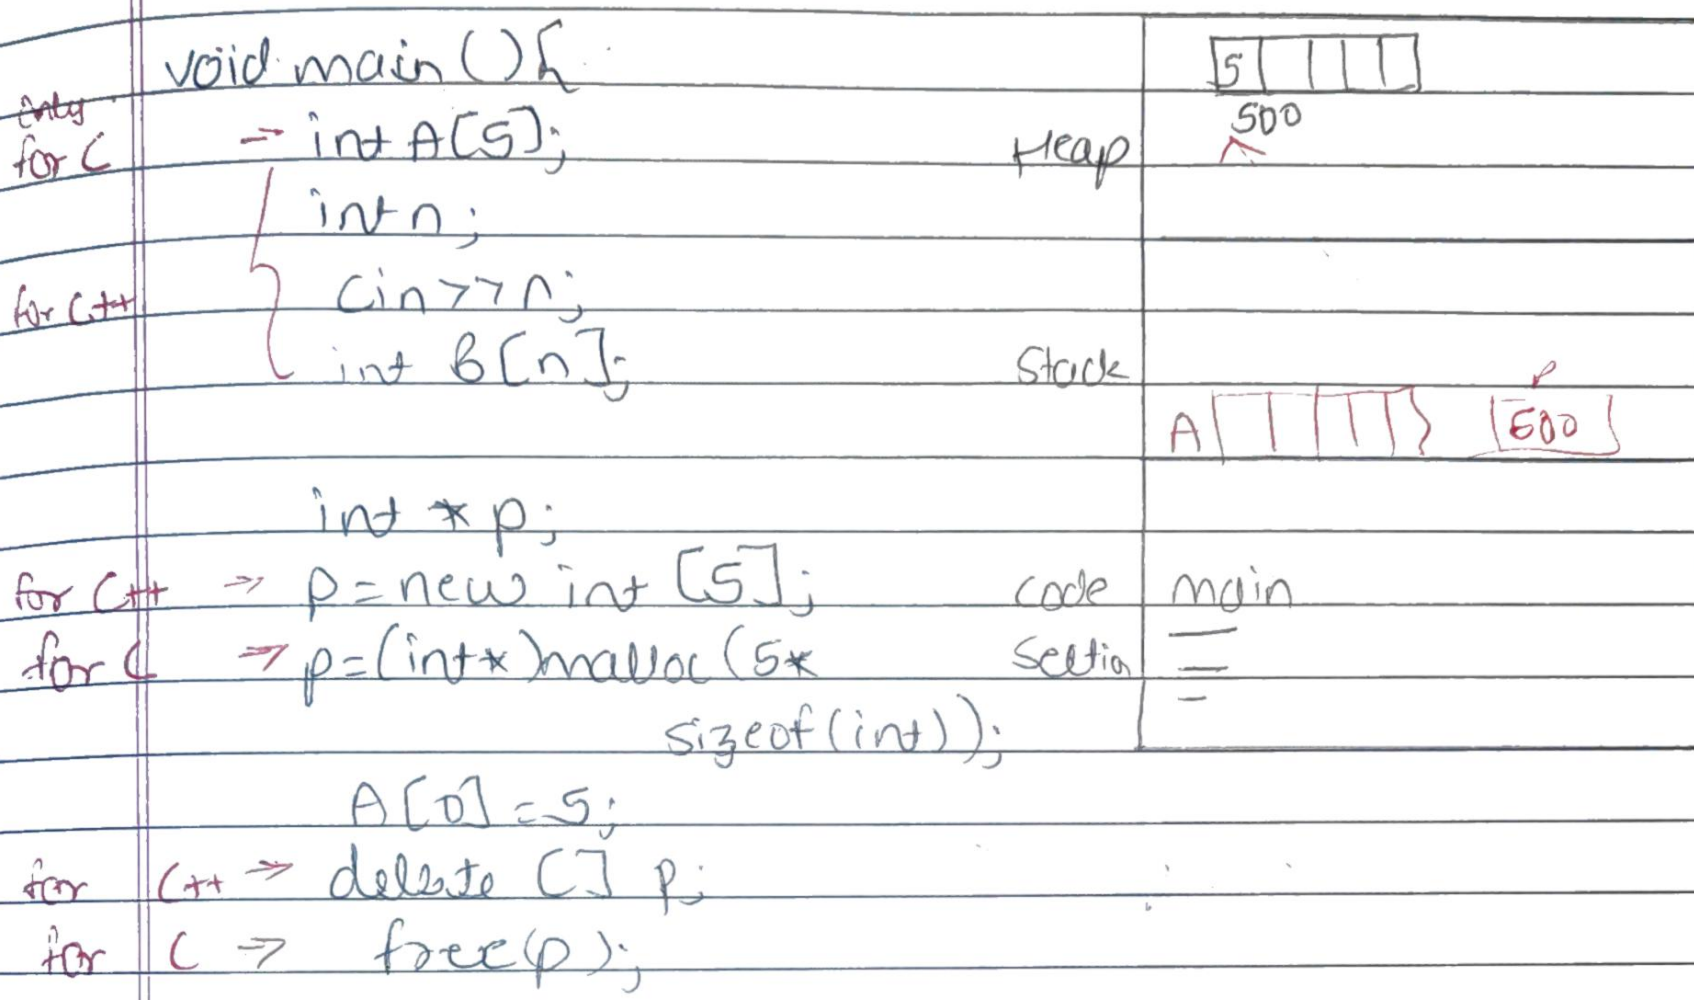 void main () {
only
for C → int A[5];
int n;
for C++ cin>>n;
int B[n];
int * p;
for C++ → p = new int [5];
for C → p=(int*)malloc(5*
sizeof(int));
A[0] = 5;
for C++ → delete [] p;
for C → free(p);
5
500
Heap
Stack
P
A 500
code main
Section